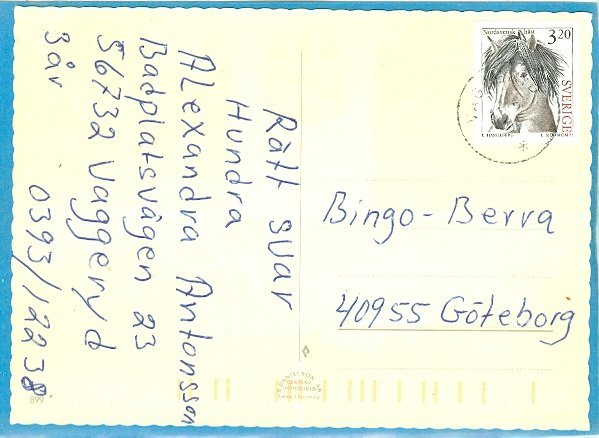 Rätt svar
Hundra
Alexandra Antonsson
Badplatsvägen 23
56732 Vaggeryd
3år
0393/12238
Nordsvensk häst
3.20
SVERIGE
VAG
Bingo-Berra
40955 Göteborg
899